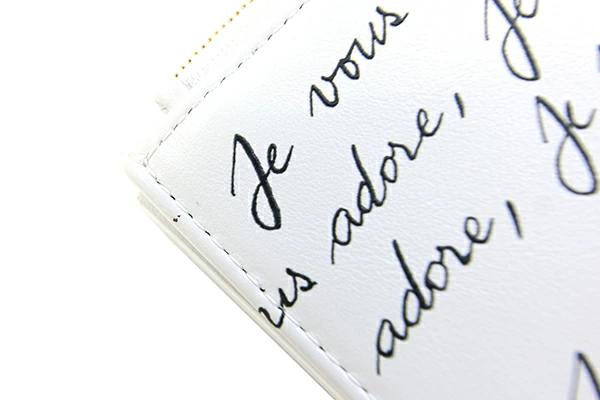 Je vous
us adore, Je
adore, Je